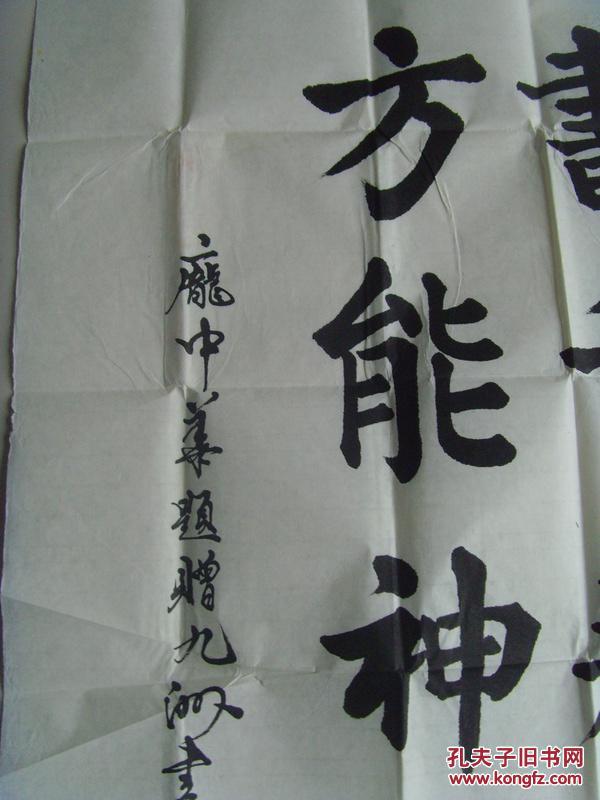 書
方能神
龐中華題贈九洲書
孔夫子旧书网
www.kongfz.com